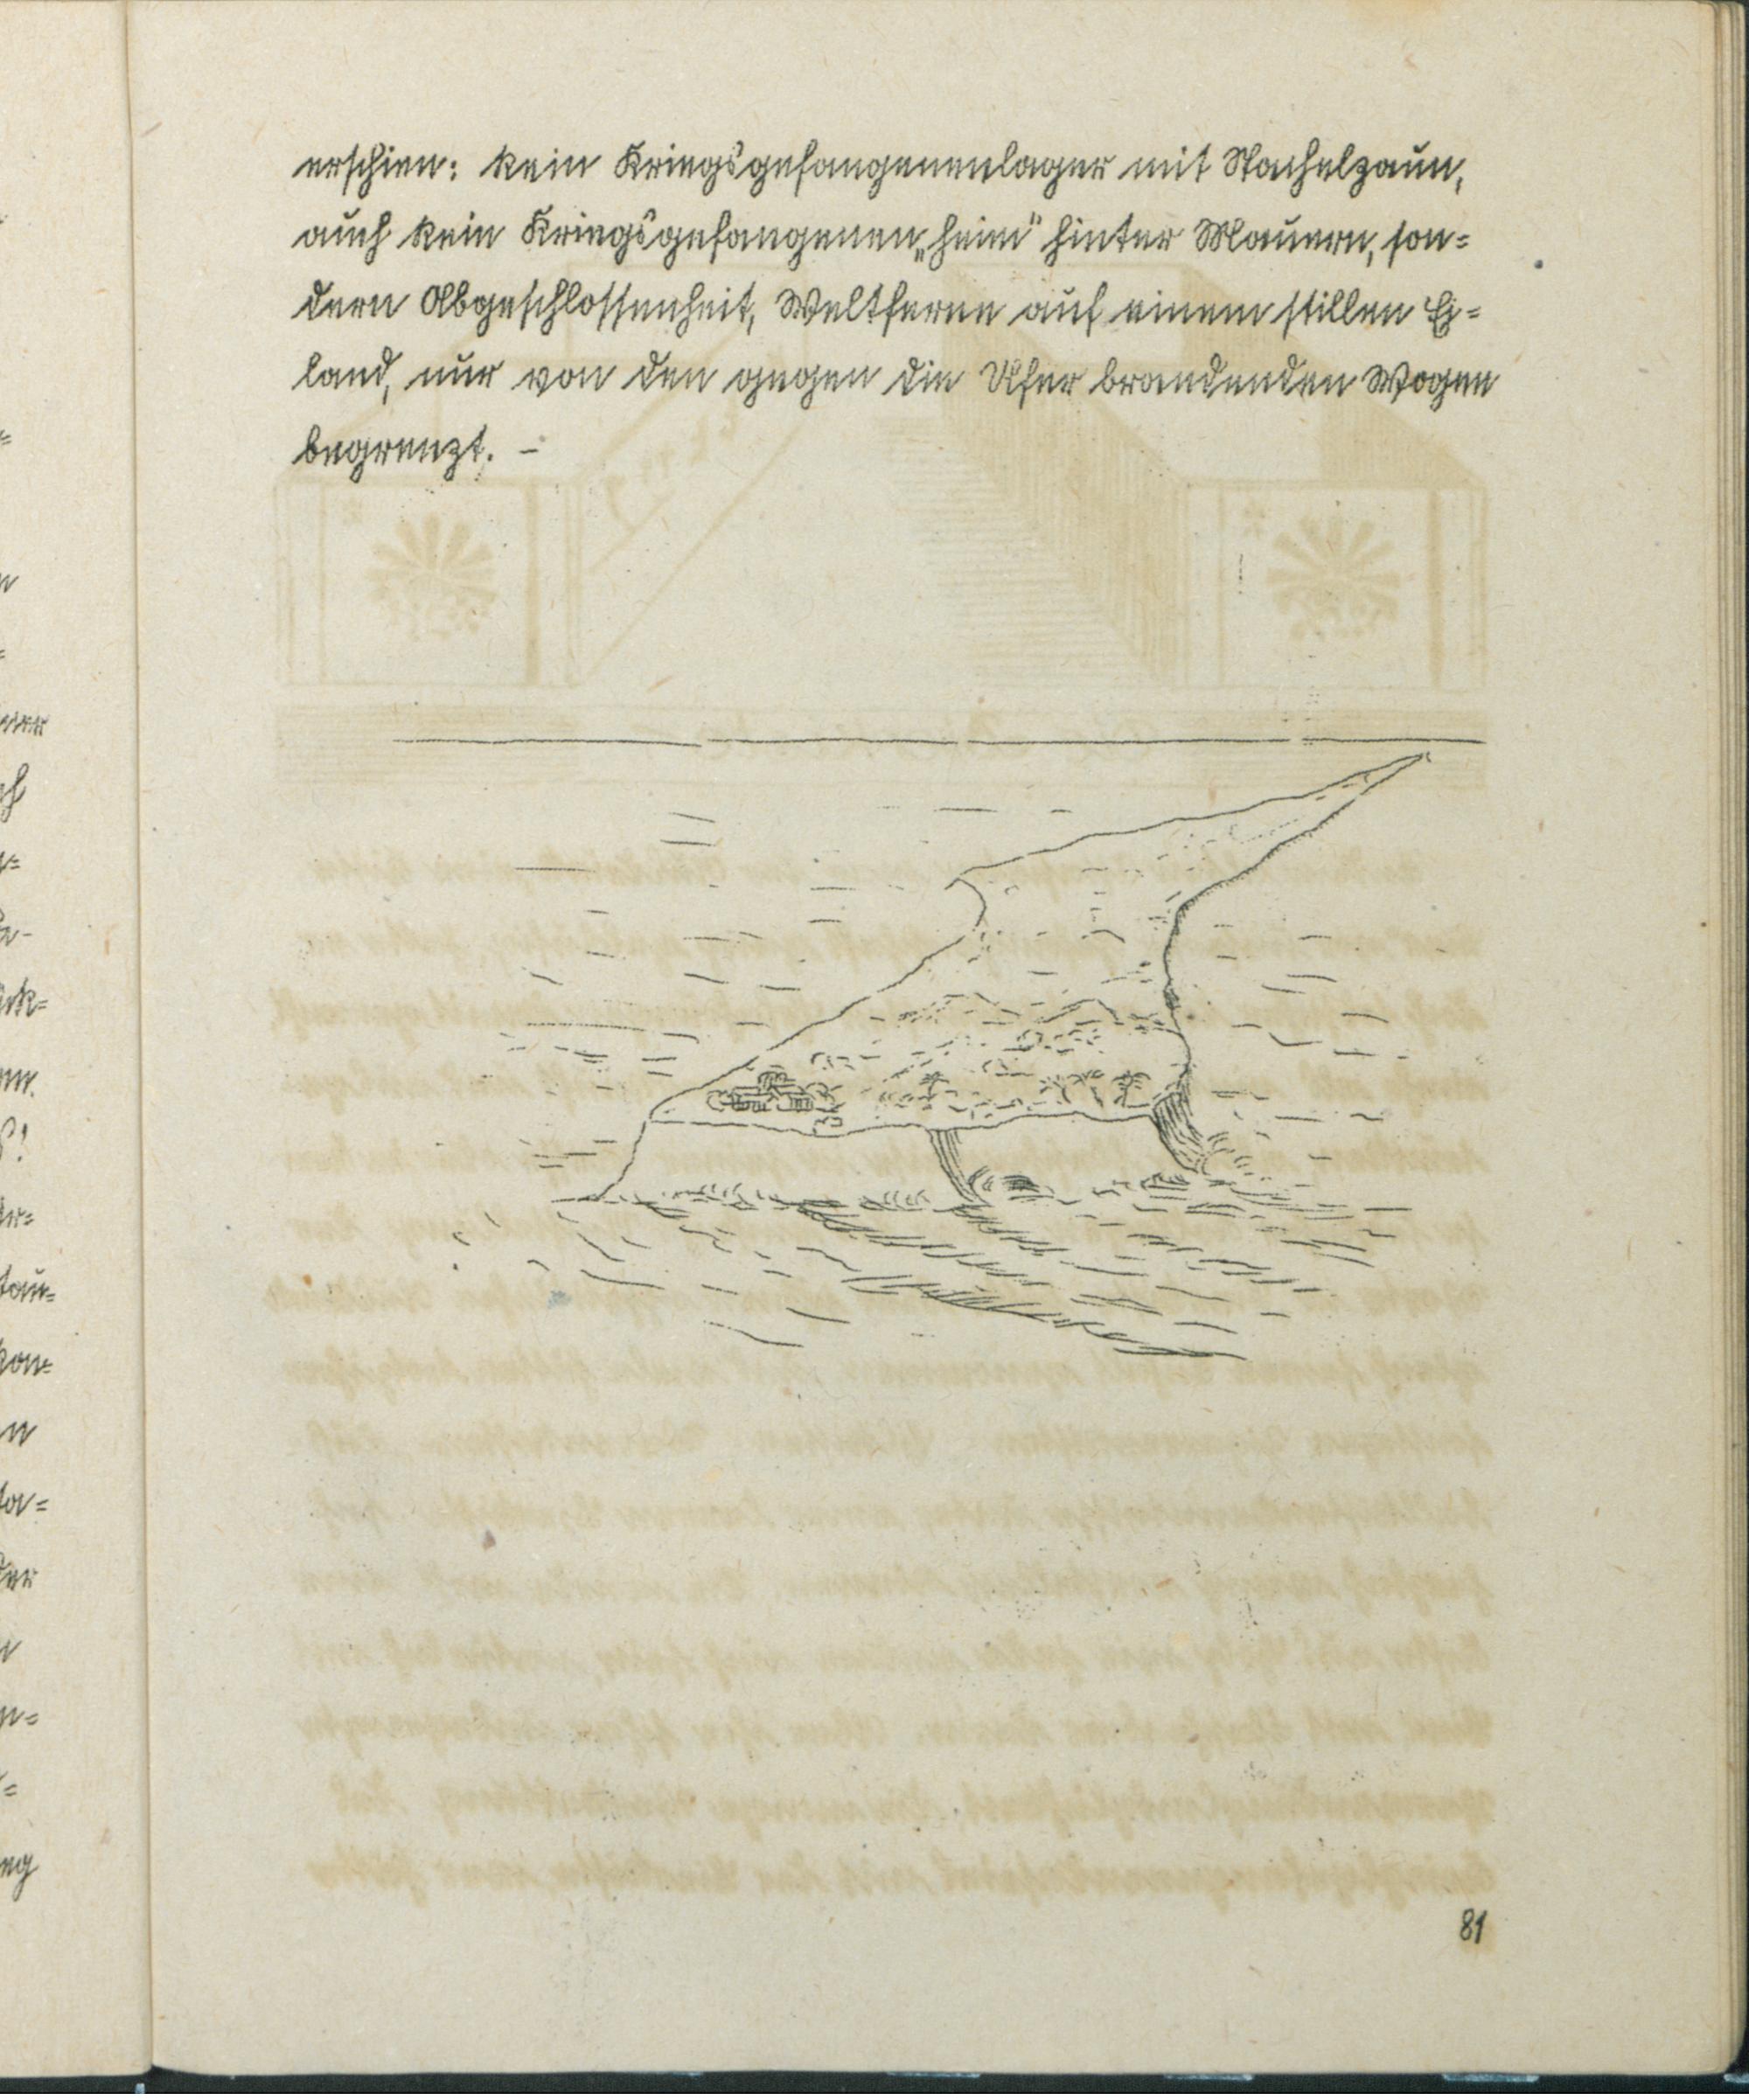 erschien: kein Kriegsgefangenenlager mit Stachelzaun,
auch kein Kriegsgefangenen„heim“ hinter Mauern, son=
dern Abgeschlossenheit, Weltferne auf einem stillen Ei=
land, nur von den gegen die Ufer brandenden Wogen
begrenzt. –
81